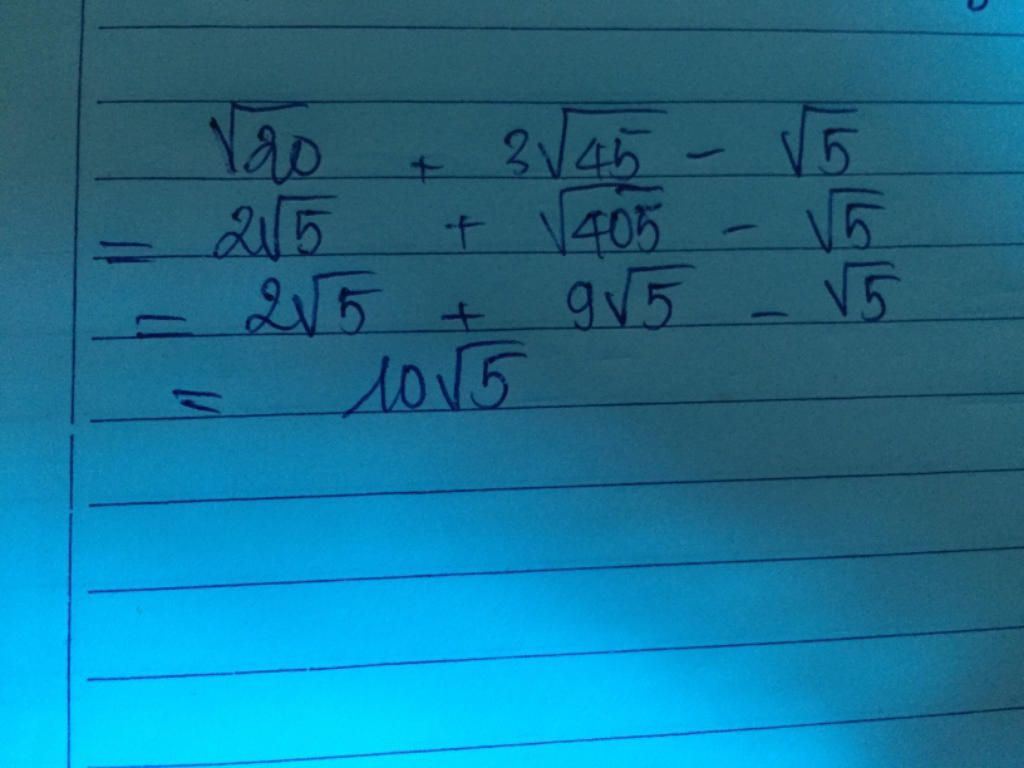 √20 + 3√45 - √5
= 2√5 + √405 - √5
= 2√5 + 9√5 - √5
= 10√5